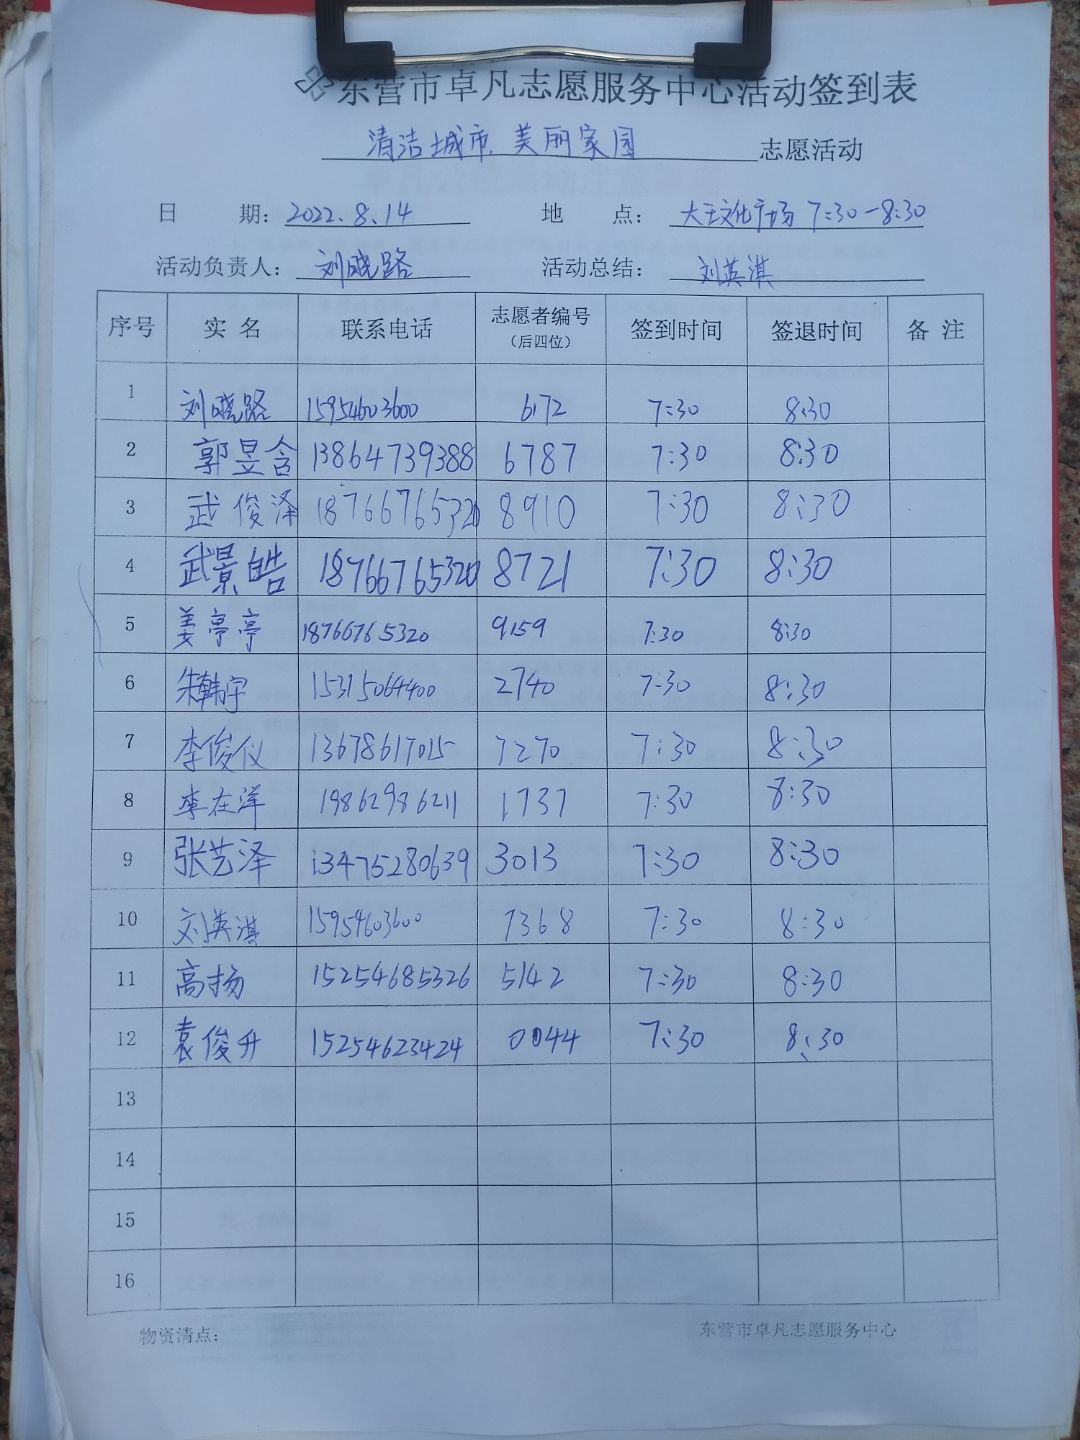 东营市卓凡志愿服务中心活动签到表
清洁城市、美丽家园 志愿活动
日 期: 2022.8.14 地 点: 大王文化广场 7:30-8:30
活动负责人: 刘晓路 活动总结: 刘英淇
序号 实名 联系电话 志愿者编号(后四位) 签到时间 签退时间 备注
1 刘晓路 15954603600 6172 7:30 8:30
2 郭昱含 13864739388 6787 7:30 8:30
3 武俊泽 18766765320 8910 7:30 8:30
4 武景皓 18766765320 8721 7:30 8:30
5 姜亭亭 18766765320 9159 7:30 8:30
6 朱韩宇 15315064400 2740 7:30 8:30
7 李俊仪 13678617015 7270 7:30 8:30
8 李在洋 19862986211 1737 7:30 8:30
9 张艺泽 13475280639 3013 7:30 8:30
10 刘英淇 15954603600 7368 7:30 8:30
11 高扬 15254685326 5142 7:30 8:30
12 袁俊升 15254623424 0044 7:30 8:30
13
14
15
16
物资清点: 东营市卓凡志愿服务中心